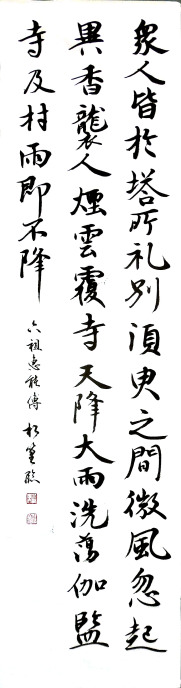 眾人皆於塔所礼別須臾之間微風忽起
異香襲人煙雲覆寺天降大雨洗蕩伽監
寺及村雨即不降
六祖惠能傳